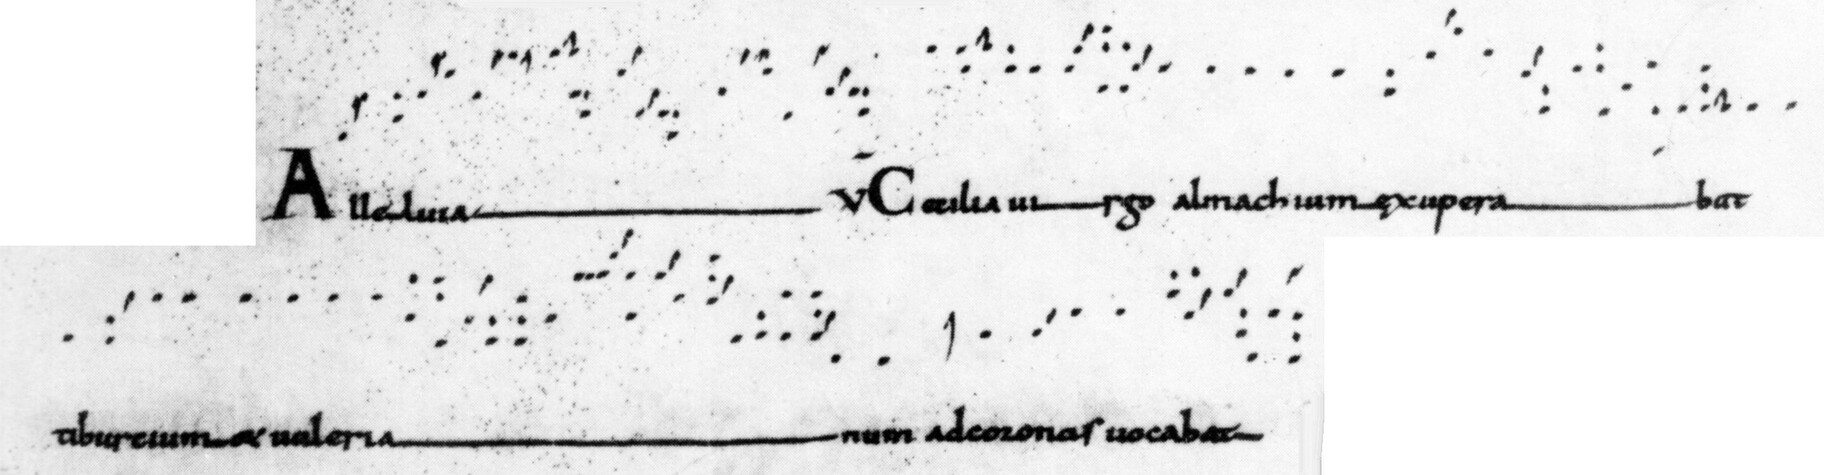 Alleluia V Cecilia uirgo almachium exuperabat
tiburcium et ualerianum ad coronas uocabat